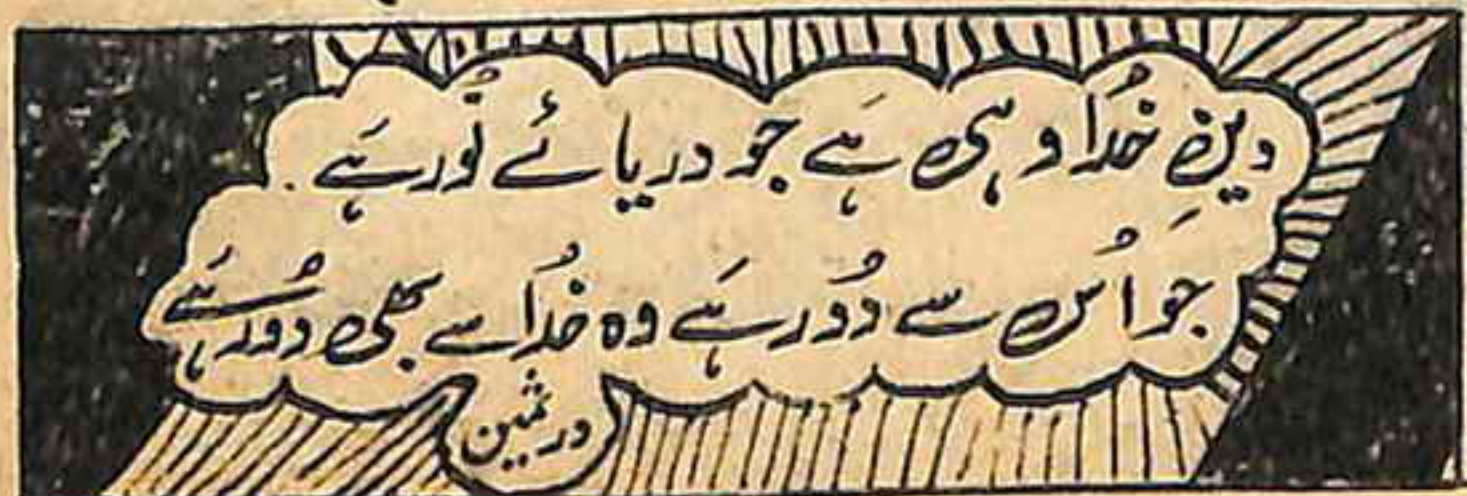 دینِ خُدا وہی ہے جو دریائے نُور ہَے
جَو اُس سے دُور ہَے وہ خُدا سے بھی دُور ہَے
درثمین